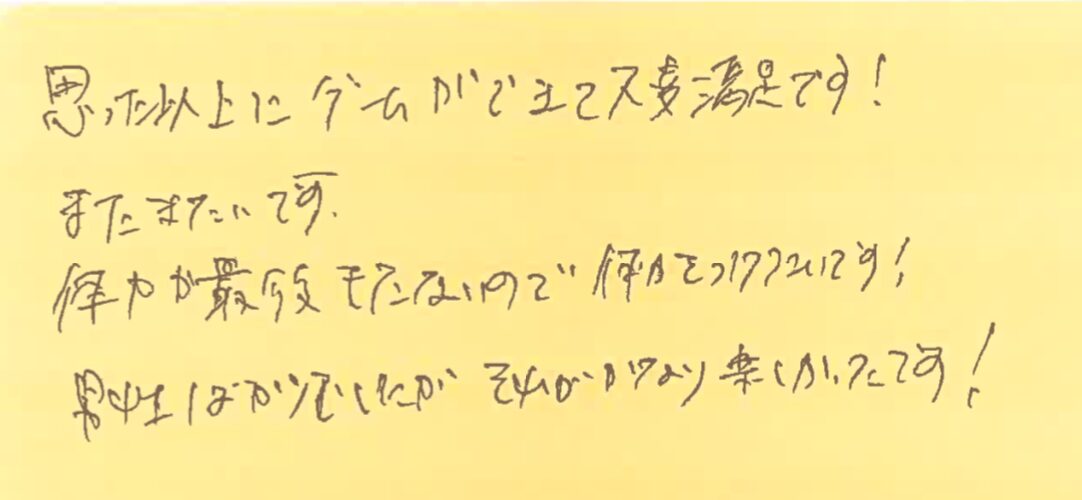 思った以上にゲームができて大変満足です！
またきたいです.
体力が最後もたないので体力をつけたいです！
男性ばかりでしたがそれがかなり楽しかったです！